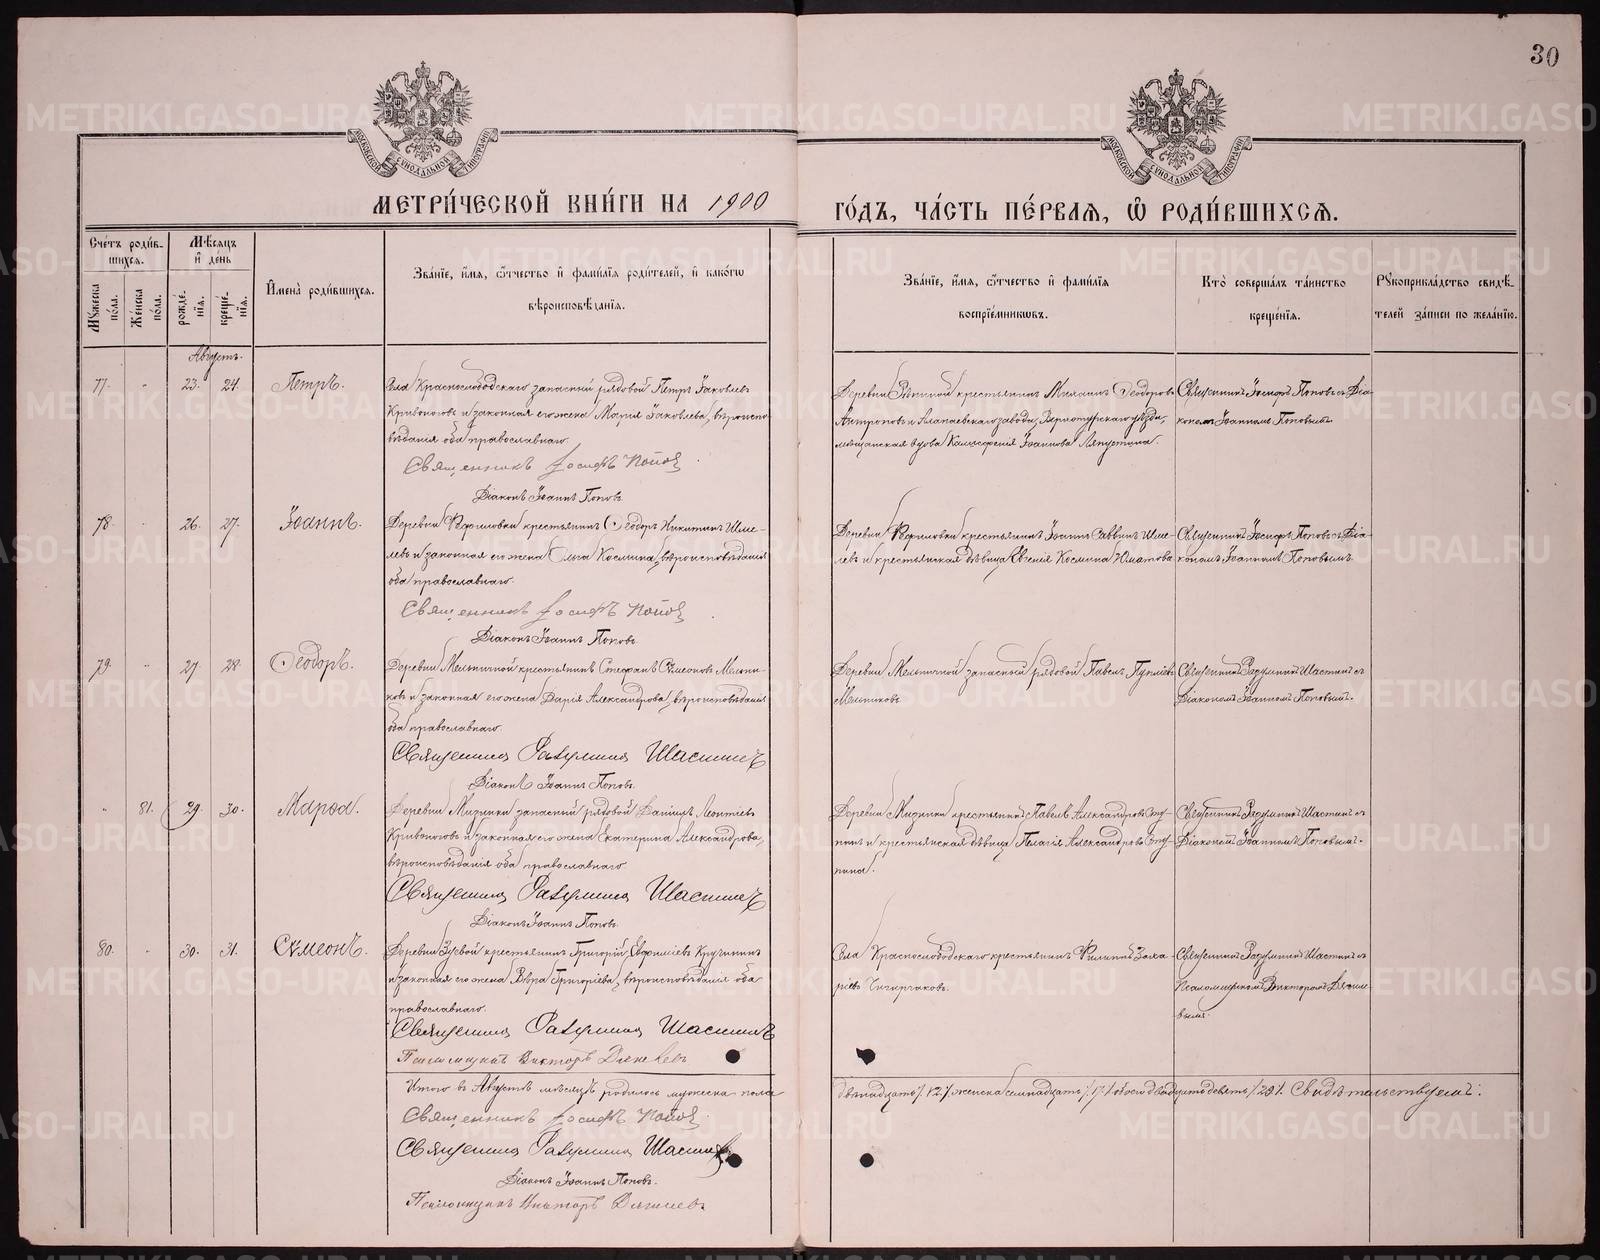 30
МОСКОВСКОЙ СѴНОДАЛЬНОЙ ТИПОГРАФІИ
МОСКОВСКОЙ СѴНОДАЛЬНОЙ ТИПОГРАФІИ
МЕТРИ́ЧЕСКОЙ КНИ́ГИ НА 1900 ГО́ДЪ, ЧА́СТЬ ПЕ́РВАѦ, Ѽ РОДИ́ВШИХСѦ.
Сче́тъ роди́в-
шихсѧ.
Мѣ́сѧцъ
и҆ де́нь
Мꙋ́жеска
по́ла.
Же́нска
по́ла.
рожде́-
нїѧ.
креще́-
нїѧ.
И҆мена̀ роди́вшихсѧ.
Зва́нїе, и҆́мѧ, ѻ҆́тчество и҆ фами́лїѧ роди́телей, и҆ како́гѡ
вѣроисповѣ́данїѧ.
Зва́нїе, и҆́мѧ, ѻ҆́тчество и҆ фами́лїѧ
воспрїе́мникѡвъ.
Кто̀ соверша́лъ та́инство
креще́нїѧ.
Рꙋкоприкла́дство свидѣ́-
телей за́писи по жела́нїю.
Августъ.
77. " 23. 24. Петръ.
Села Краснослободскаго запасный рядовой Петръ Іаковлевъ
Кривоноговъ и законная его жена Марія Іаковлева, вѣроиспо-
вѣданія оба православнаго.
Священникъ Іосифъ Попов
Діаконъ Іоаннъ Поповъ.
крестьянинъ Ѳеодоровъ
Антроповъ и Алапаевскаго завода, Верхотурскаго уѣзда,
мѣщанская вдова Іоаннова Ляпустина.
Священникъ Іосифъ Поповъ съ Діа-
кономъ Іоанномъ Поповымъ
78. " 26. 27. Іоаннъ.
Деревни крестьянинъ Ѳеодоръ Никитинъ Шме-
левъ и законная его жена Ольга Космина, вѣроисповѣданія
оба православнаго.
Священникъ Іосифъ Попов
Діаконъ Іоаннъ Поповъ.
Деревни крестьянинъ Іоаннъ Саввинъ Шме-
левъ и крестьянская дѣвица Евгенія Космина
Священникъ Іосифъ Поповъ съ Діа-
кономъ Іоанномъ Поповымъ.
79. " 27. 28. Ѳеодоръ.
Деревни Мельничной крестьянинъ Стефанъ Сѵмеоновъ Мельни-
ковъ и законная его жена Дарія Александрова, вѣроисповѣданія
оба православнаго.
Священникъ Шастинъ
Діаконъ Іоаннъ Поповъ.
Деревни Мельничной запасный рядовой Павелъ
Мельниковъ.
Священникъ Шастинъ съ
Діакономъ Іоанномъ Поповымъ.
" 81. 29. 30. Марѳа.
Деревни запасный рядовой Даніилъ Леонтіевъ
Кривоноговъ и законная его жена Екатерина Александрова,
вѣроисповѣданія оба православнаго.
Священникъ Шастинъ
Діаконъ Іоаннъ Поповъ.
Деревни крестьянинъ Павелъ Александровъ
и крестьянская дѣвица Пелагія Александрова
Священникъ Шастинъ съ
Діакономъ Іоанномъ Поповымъ.
80. " 30. 31. Сѵмеонъ.
Деревни крестьянинъ Григорій Кручининъ
и законная его жена Вѣра Григоріева, вѣроисповѣданія оба
православнаго.
Священникъ Шастинъ
Псаломщикъ Викторъ
Села Краснослободскаго крестьянинъ Филиппъ Заха-
ріевъ
Священникъ Шастинъ съ
Псаломщикомъ Викторомъ
Итого въ Августѣ мѣсяцѣ родилось мужеска пола двѣнадцать /12/ женска семнадцать /17/ обоего двадцать девять /29/. Свидѣтельствуемъ:
Священникъ Іосифъ Попов
Священникъ Шастинъ
Діаконъ Іоаннъ Поповъ.
Псаломщикъ Викторъ
METRIKI.GASO-URAL.RU